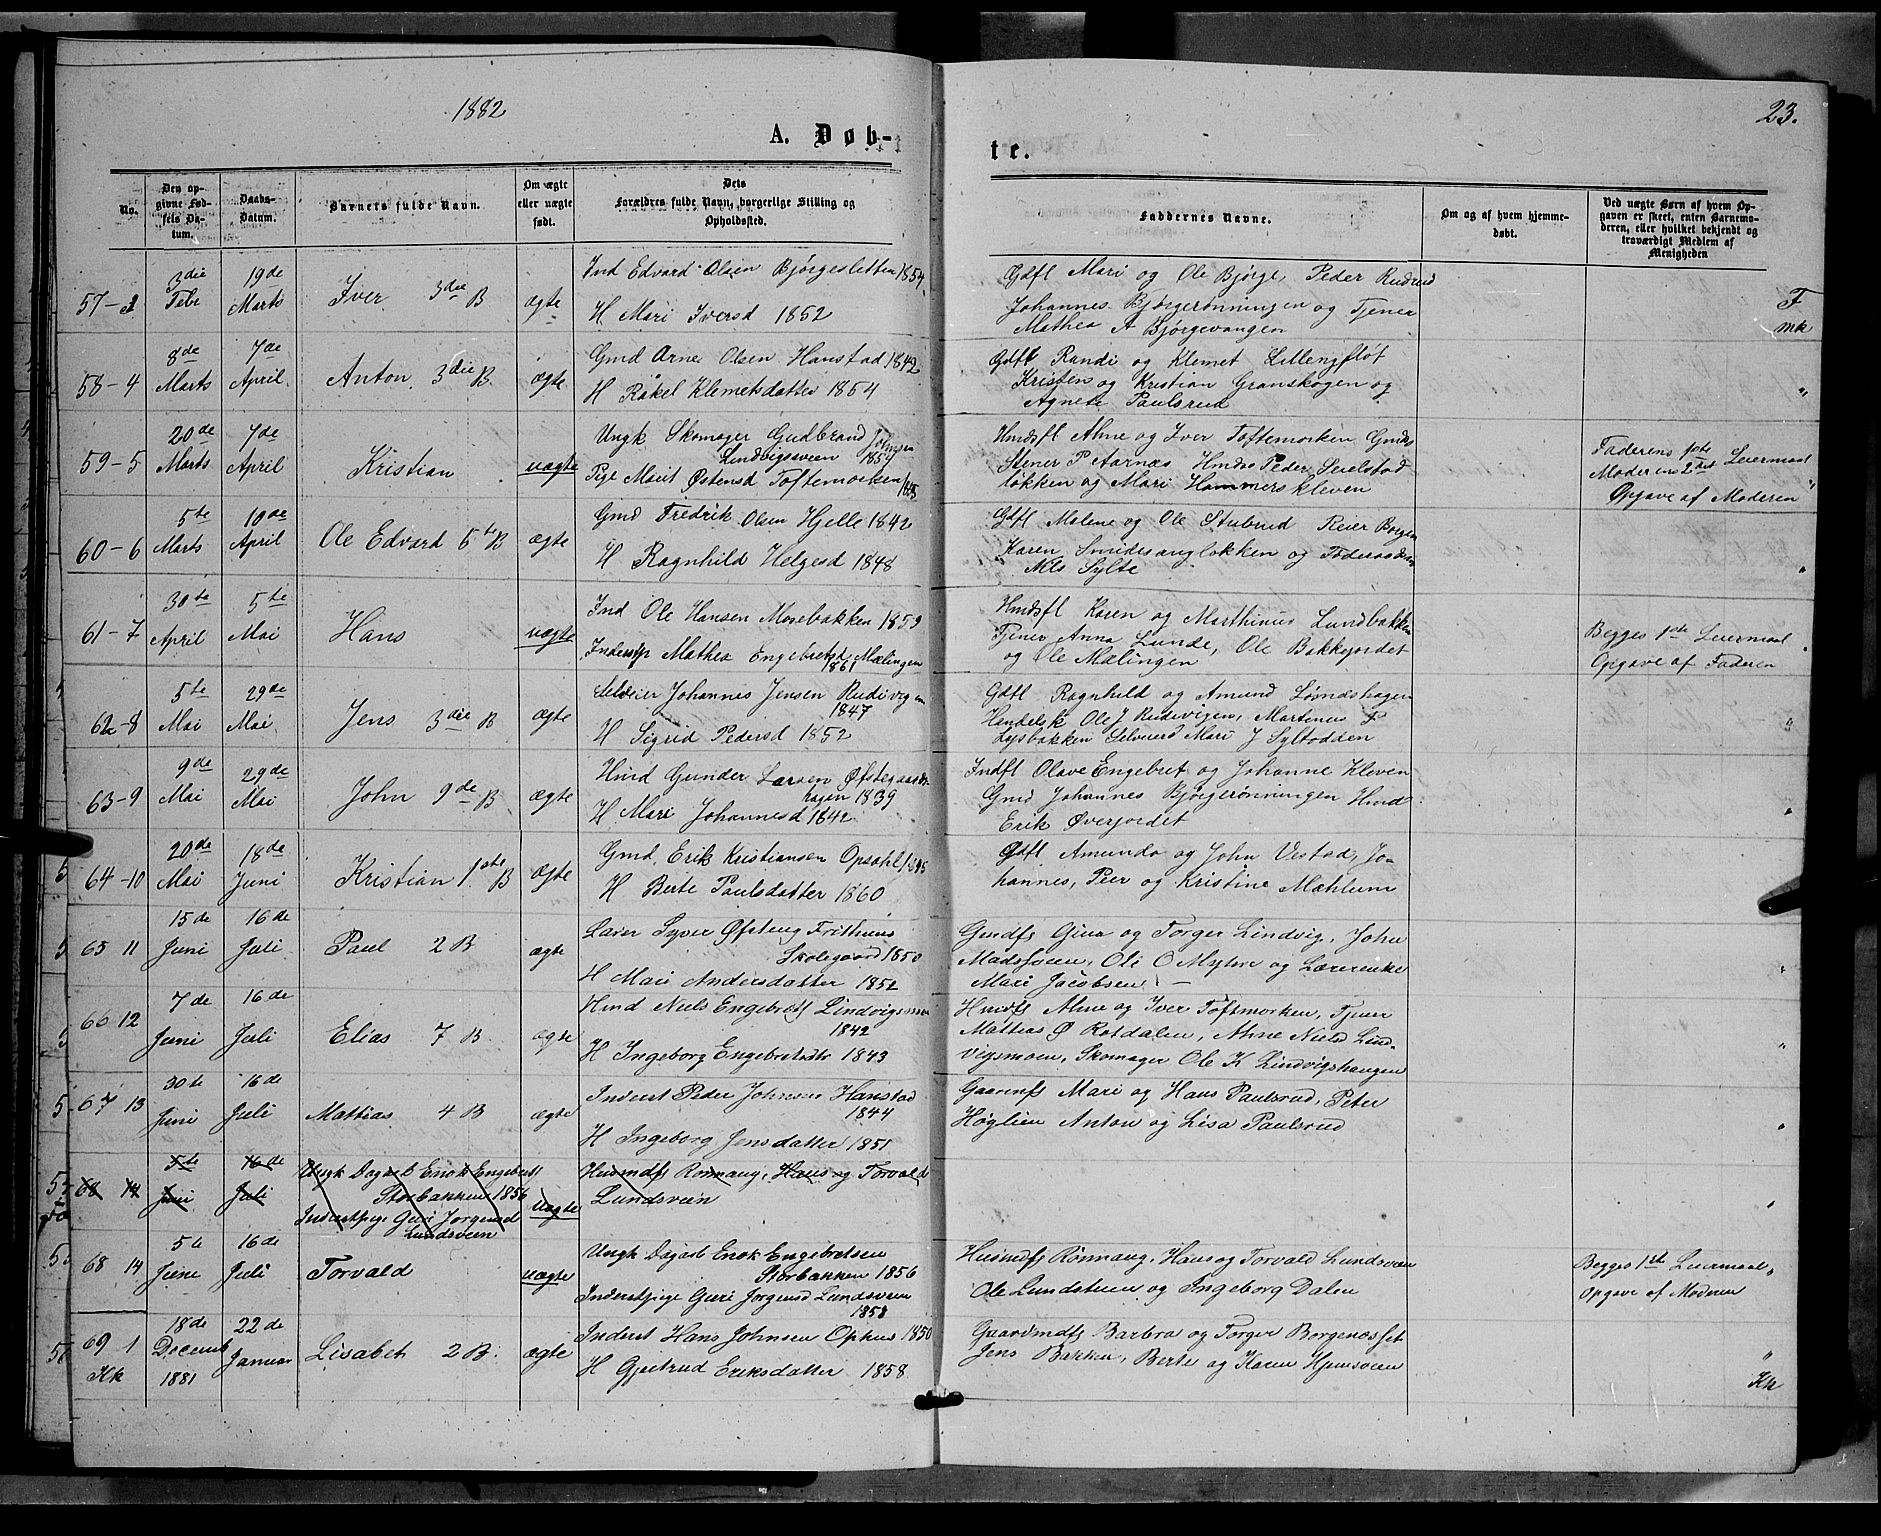 1882
23.
A. Døb-
te.
No.
Den op-
givne Fød-
sels Da-
tum.
Daabs-
Datum.
Barnets fulde Navn.
Om ægte
eller uægte
født.
Dets
Forældres fulde Navn, borgerlige Stilling og
Opholdssted.
Faddernes Navne.
Om og af hvem hjemme-
døbt.
Ved uægte Børn af hvem Op-
gaven er skeet, enten Barnemo-
deren, eller hvilket bekjendt og
troværdigt Medlem af
Menigheden
57-3
3die
Febr
19de
Marts
Iver 3die B
ægte
Ind Edvard Olsen Bjørgesletten 1854
H Mari Iversd 1852
Gdfl Mari og Ole Bjørge, Peder Rudrud
Johannes Bjørgerønningen og Tjener
Mathea A Bjørgevangen
F
mk
58-4
8de
Marts
7de
April
Anton 3die B
ægte
Gmd Arne Olsen Hanstad 1842
H Rakel Klemetsdatter 1854
Gdfl Randi og Klemet Lillengsløt
Kristen og Kristian Granskogen og
Agnete Paulsrud
"
59-5
20de
Marts
7de
April
Kristian
uægte
Ungk Skomager Gudbrand Johnsen
Lindvigsveen 1857
Pige Marit Østensd Toftemorken
Hmdsfl Ahne og Iver Toftemorken Gmds
Stener P Aarnæs Hmds Peder Seielstad
løkken og Mari Hammerskleven
Faderens 1ste
Moderens 2det Leiermaal
Opgave af Moderen
"
60-6
5te
Marts
10de
April
Ole Edvard 6te B
ægte
Gmd Fredrik Olsen Hjelle 1842
H Ragnhild Helgesd 1848
Gdfl Malene og Ole Stubrud Reier Borgen
Karen Smidesangløkken og
Nils Sylte
"
61-7
30te
April
5te
Mai
Hans
uægte
Ind Ole Hansen Mosebakken 1859
Inderstp Mathea Engebretsd Mælingen
1861
Hmdsfl Karen og Marthinus Lundbakken
Tjener Anna Lunde, Ole Bakkejordet
og Ole Mælingen
Begges 1ste Leiermaal
Opgave af Faderen
"
62-8
5te
Mai
29de
Mai
Jens 3die B
ægte
Selveier Johannes Jensen Rudivigen
1847
H Sigrid Pedersd 1852
Gdfl Ragnhild og Amund Løsndshagen
Handelsk Ole J Rudevigen, Martenus P
Lysbakken Selveierd Mari J Syltodden
"
63-9
9de
Mai
29de
Mai
John 9de B
ægte
Hmd Gunder Larsen Øfstegaards
hagen 1839
H Mari Johannesd 1842
Indfl Olave Engebret og Johanne Kleven
Gmd Johannes Bjørgerønningen Hmd
Erik Øverjordet
"
64-10
20de
Mai
18de
Juni
Kristian 1ste B
ægte
Gmd Erik Kristiansen Opsahl
H Berte Paulsdatter 1860
Gdfl Amunda og John Vestad, Jo-
hannes, Peer og Kristine Mæhlum
65 11
15de
Juni
16de
Juli
Paul 2 B
ægte
Lærer Syver Øfsteng Frithiuns
Skolegaard 1850
H Mari Andersdatter 1852
Gmdfs Gina og Torger Lindvig, John
Madssveen, Ole O Myhre og Lærerenke
Mari Jacobsen. –
"
66 12
7de
Juni
16de
Juli
Elias 7 B
ægte
Hmd Niels Engebretf Lindvigsmoen
1842
H Ingeborg Engebretsdtr 1843
Hmdfs Ahne og Iver Toftmorken, Tjener
Mattias Ø Rotdalen, Ahne Nielsd Lind-
vigsmoen, Skomager Ole K Lindvigshaugen
"
67 13
30te
Juni
16de
Juli
Mattias 4 B
ægte
Inderst Peder Johnsen Hanstad
1844
H Ingeborg Jensdatter 1851
Gaarmfs Mari og Hans Paulsrud, Peter
Høglien Anton og Lisa Paulsrud
"
68 14
5te
Juni
16de
Juli
Ungk Dagarb Enok Engebretf
Storbakken 1856
Inderstpige Guri Jorgensd
Lundsveen
uægte
Husmdfs Rønnaug, Hans og Torvald
Lundsveen
"
68 14
5te
June
16de
Juli
Torvald
uægte
Ungk Dagarb Enok Engebretsen
Storbakken 1856
Inderstpige Guri Jorgensd Lundsveen
1858
Husmdfs Rønnaug, Hans og Torvald Lundsveen
Ole Lundstuen og Ingeborg Dalen
Begges 1ste Leiermaal
Opgave af Moderen
"
69 1
Kk
18de
Decemb
1881
22de
Januar
Lisabet 2 B.
ægte
Inderst Hans Johnsen Ophus 1850
H Gjertrud Eriksdatter 1858
Gaardmdfs Barbra og Torger Borgenæsset
Jens Bakken, Berte og Karen Hjemsveen
"
Kk